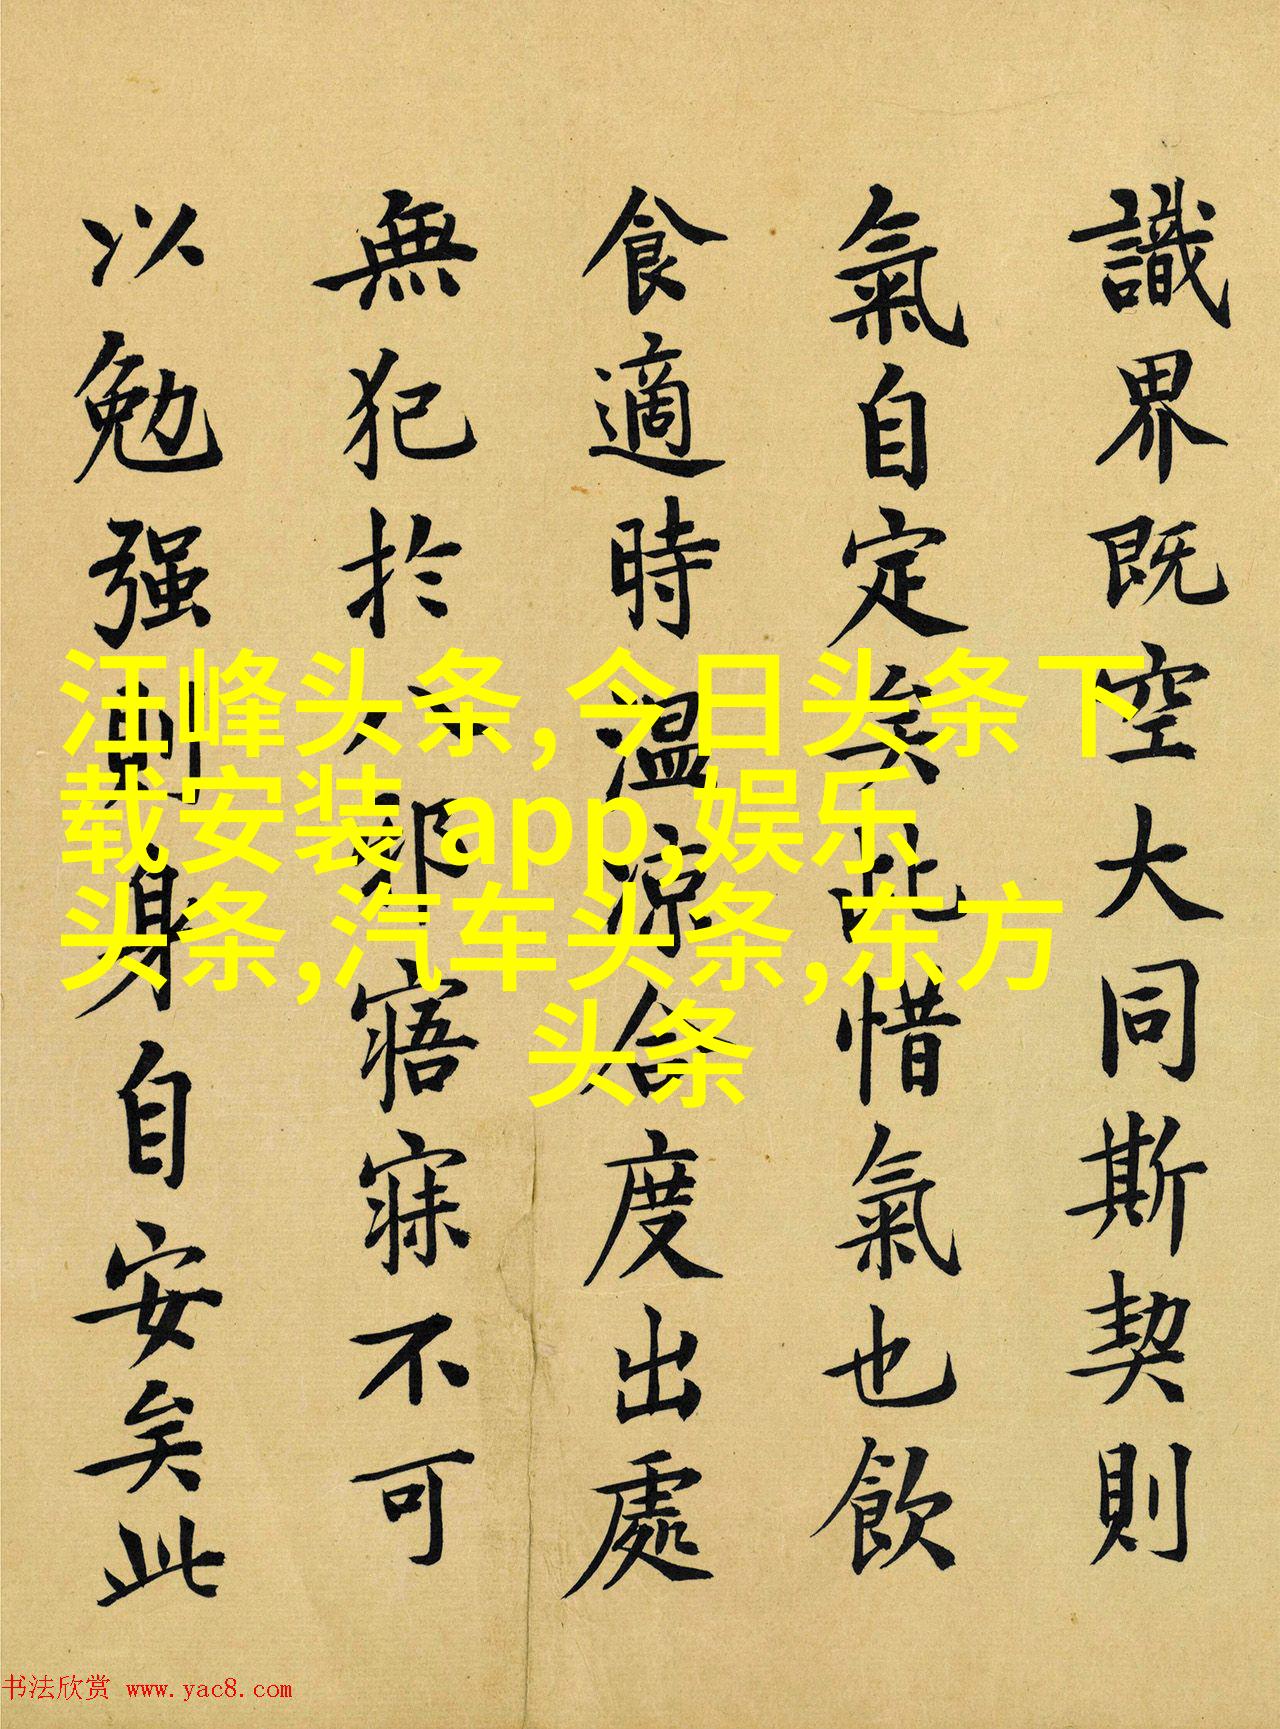 識界既空大同斯契則
氣自定矣此惜氣也飲
食適時溫涼合度出處
無犯於八邪寤寐不可
以勉强則身自安矣此
汪峰头条,今日头条下
载安装 app,娱乐
头条,汽车头条,东方
头条
书法欣赏 www.yac8.com